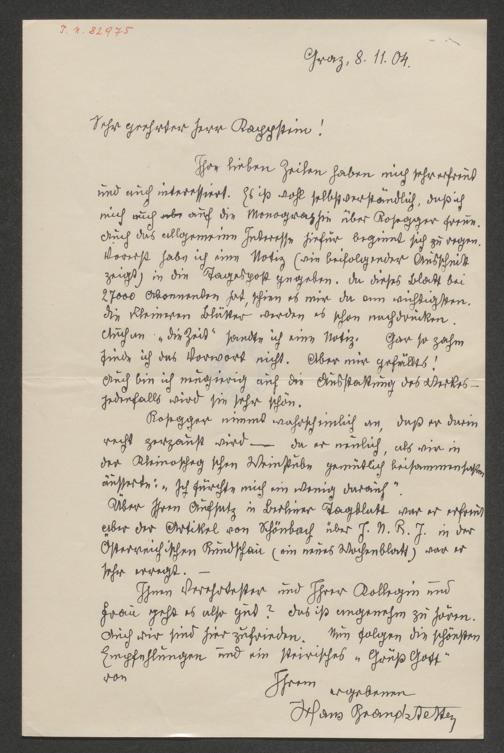 J. N. 82975
Graz, 8. 11. 04.
Sehr geehrter Herr Kappstein!
Ihre lieben Zeilen haben mich sehr erfreut
und auch interessiert. Es ist wohl selbstverständlich, daß ich
mich auch auf die Monographie über Rosegger freue.
Auch das allgemeine Interesse hiefür beginnt sich zu regen.
Vorerst habe ich eine Notiz (wie beifolgender Ausschnitt
zeigt) in die Tagespost gegeben. Da dieses Blatt bei
27000 Abonnenten hat, schien es mir da am wichtigsten.
Die kleineren Blätter werden es schon nachdrucken.
Auch an „die Zeit" sandte ich eine Notiz. Gar so zahm
finde ich das Vorwort nicht. Aber mir gefällts!
Auch bin ich neugierig auf die Ausstattung des Werkes –
jedenfalls wird sie sehr schön.
Rosegger nimmt wahrscheinlich an, daß er darin
recht zerzaust wird — da er neulich, als wir in
der Kleinoscheg'schen Weinstube gemütlich beisammensaßen
äusserte: „Ich fürchte mich ein wenig darauf".
Über Ihren Aufsatz im Berliner Tagblatt war er erfreut
aber der Artikel von Schönbach über J. N. R. J. in der
Österreichischen Rundschau (ein neues Wochenblatt) war er
sehr erregt. –
Ihnen Verehrtester und Ihrer Kollegin und
Frau geht es also gut? Das ist angenehm zu hören.
Auch wir sind hier zufrieden. Nun folgen die schönsten
Empfehlungen und ein steirisches „Grüß Gott"
von
Ihrem
ergebenen
Hans Brandstetter